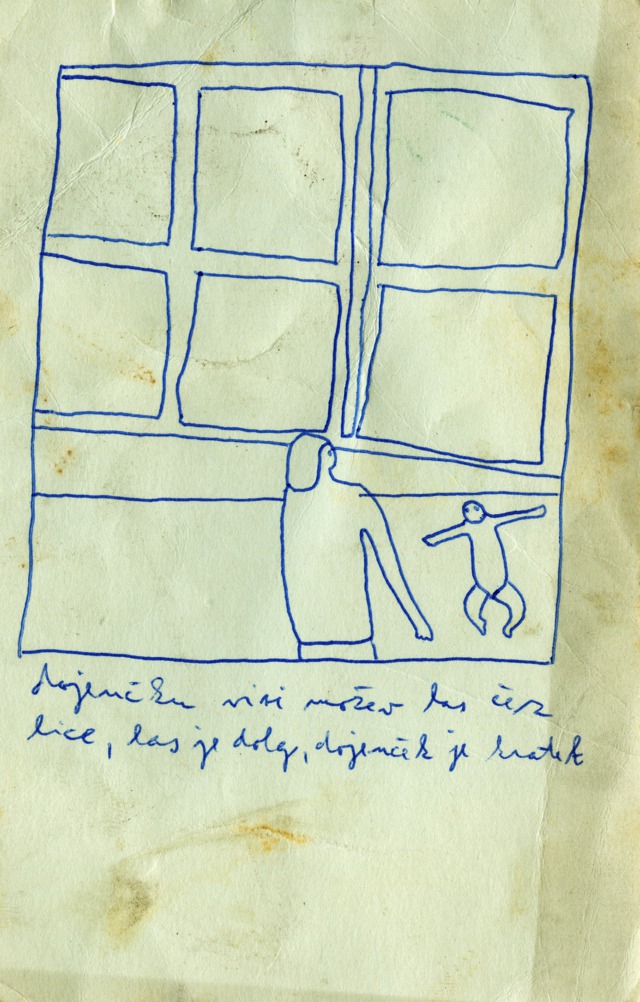 dojenčku visi možev las čez
lice, las je dolg, dojenček je kratek